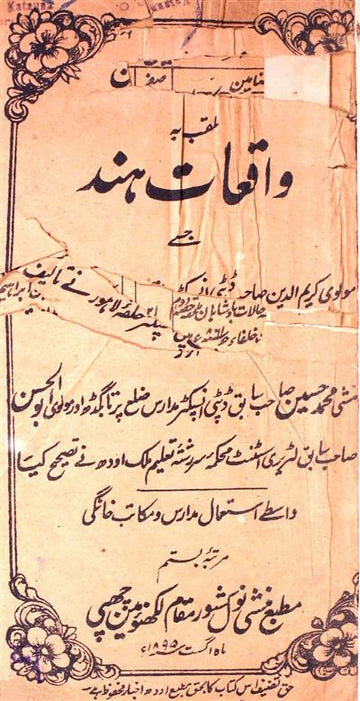 Katauna
مضامین
ملقب بہ
واقعات ہند
جسے
مولوی کریم الدین صاحب ڈپٹی انسپکٹر
حلقہ لاہور نے تالیف
حالات بادشاہان
منشی محمد حسین صاحب سابق ڈپٹی انسپکٹر مدارس ضلع پرتابگڈھ اور مولوی ابو الحسن
صاحب سابق لٹریری اسٹنٹ محکمہ سررشتہ تعلیم ملک اودھ نے تصحیح کیا
واسطے استعمال مدارس و مکاتب خانگی
مرتبۂ بستم
مطبع منشی نول کشور مقام لکھنؤ مین چھپی
ماہ اگست ۱۸۹۵ء
حق تصنیف اس کتاب کا بحق مطبع اودھ اخبار محفوظ ہے